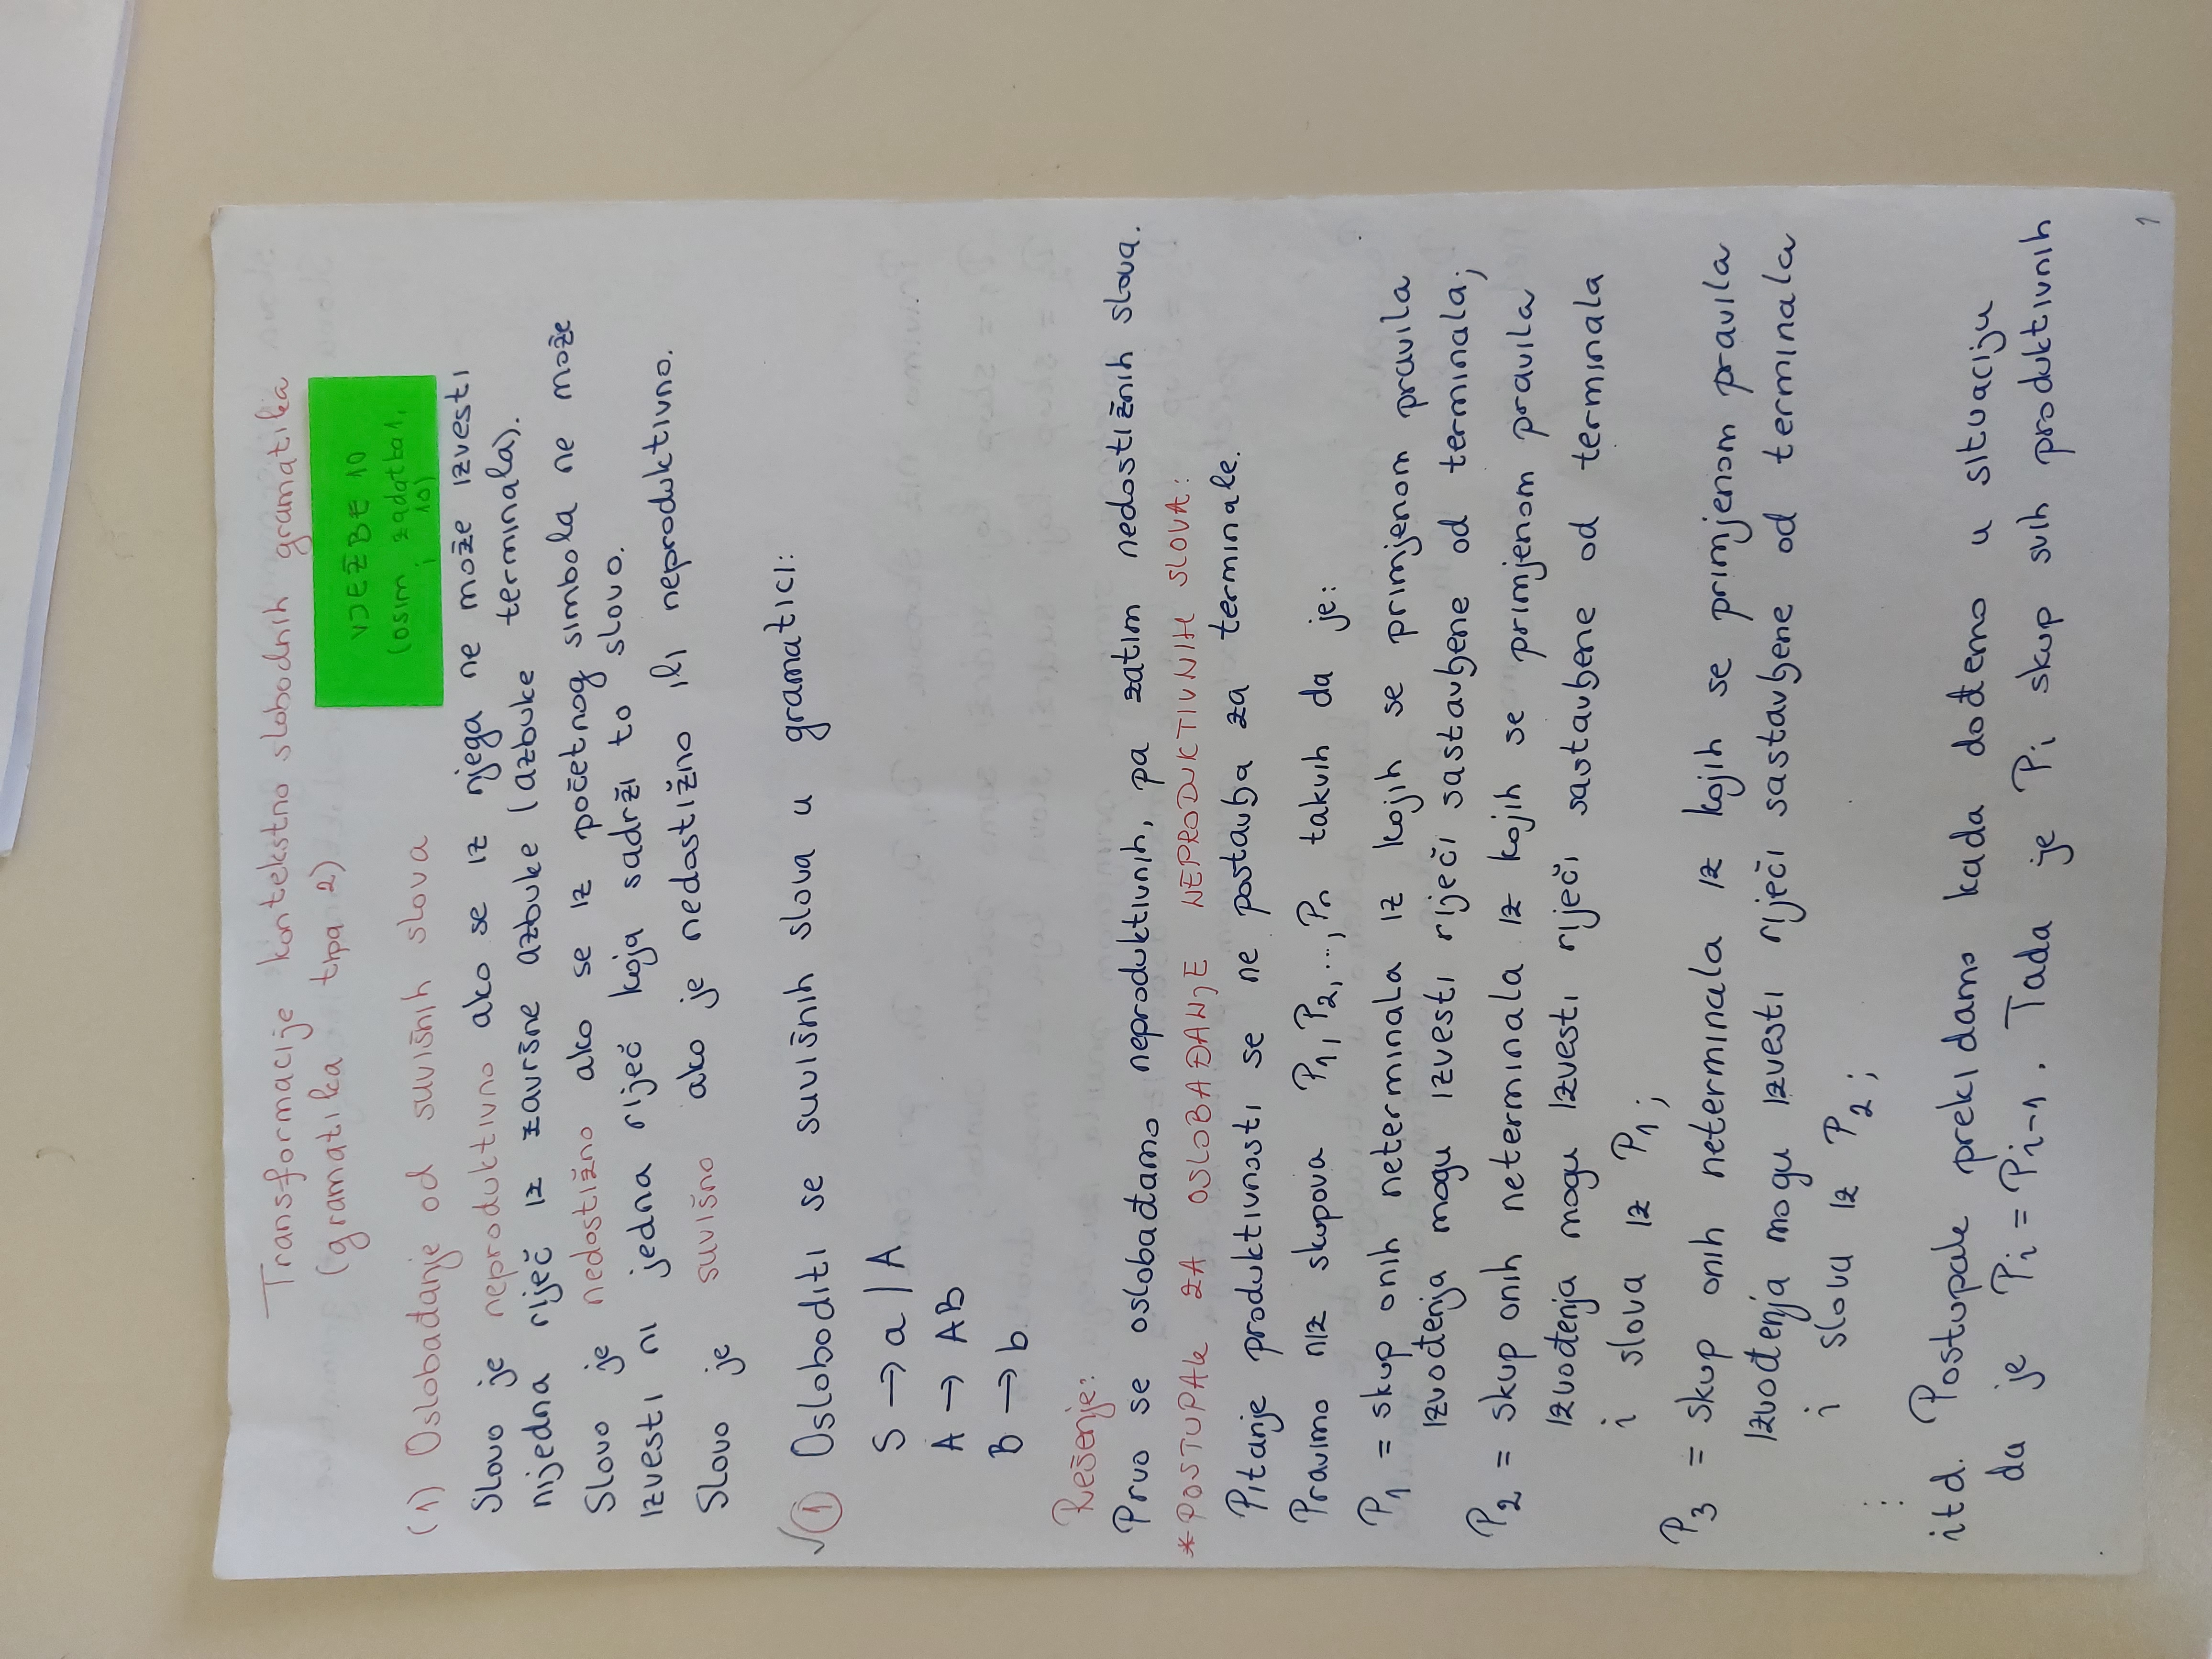 Transformacije kontekstno slobodnih gramatika
(gramatika tipa 2)
VJEŽBE 10
(osim zadatka 1,
i 10)
(1) Oslobađanje od suvišnih slova
Slovo je neproduktivno ako se iz njega ne može izvesti
nijedna riječ iz završne azbuke (azbuke terminala).
Slovo je nedostižno ako se iz početnog simbola ne može
izvesti ni jedna riječ koja sadrži to slovo.
Slovo je suvišno ako je nedostižno ili neproduktivno.
✓① Osloboditi se suvišnih slova u gramatici:
S → a | A
A → AB
B → b
Rešenje:
Prvo se oslobađamo neproduktivnih, pa zatim nedostižnih slova.
*POSTUPAK ZA OSLOBAĐANJE NEPRODUKTIVNIH SLOVA:
Pitanje produktivnosti se ne postavlja za terminale.
Pravimo niz skupova P₁, P₂, ..., Pₙ takvih da je:
P₁ = skup onih neterminala iz kojih se primjenom pravila
izvođenja mogu izvesti riječi sastavljene od terminala;
P₂ = skup onih neterminala iz kojih se primjenom pravila
izvođenja mogu izvesti riječi sastavljene od terminala
i slova iz P₁;
P₃ = skup onih neterminala iz kojih se primjenom pravila
izvođenja mogu izvesti riječi sastavljene od terminala
i slova iz P₂;
⋮
itd. Postupak prekidamo kada dođemo u situaciju
da je Pᵢ = Pᵢ₋₁. Tada je Pᵢ skup svih produktivnih
1